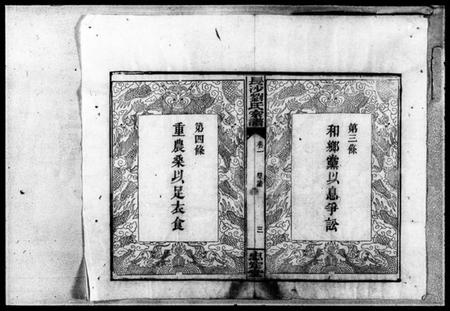 第三條
和鄉黨以息爭訟
長沙劉氏家譜
卷一
聖諭
三
第四條
重農桑以足衣食